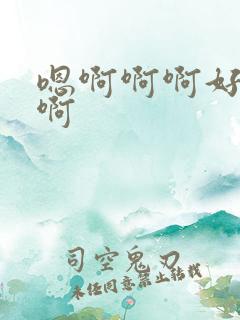 嗯啊啊啊好
啊
司空鬼刃
未经同意禁止转载